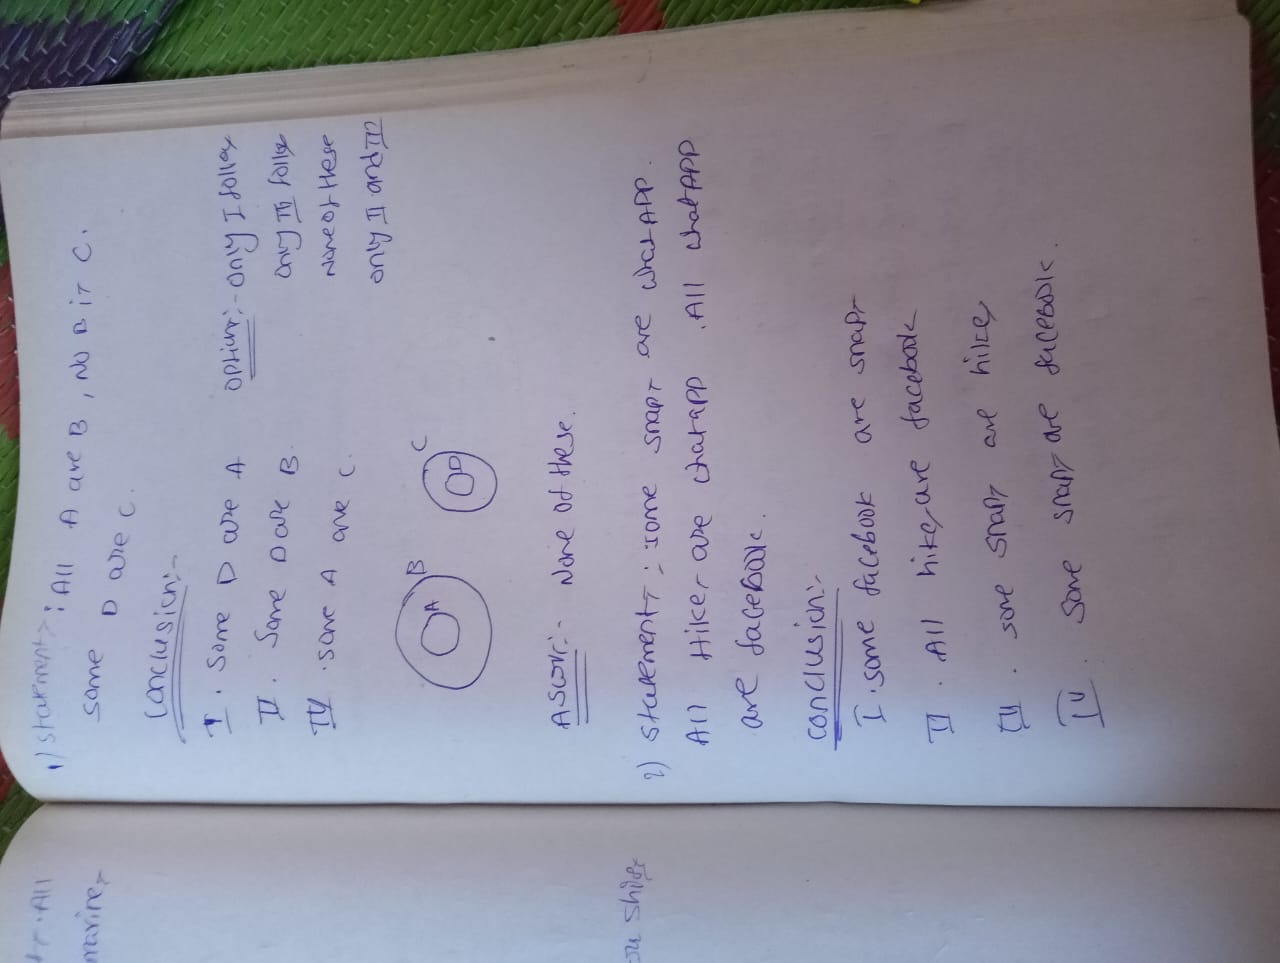 1) Statements : All A are B, No B is C.
Some D are C.
Conclusion:-
I. Some D are A
II. Some D are B.
IV. Some A are C.
Option:- Only I follow
Only IV follow
None of these
only II and IV
A
B
D
C
Aswr:- None of these.
2) Statements : Some snaps are whatAPP.
All Hikes are whatapp. All whatAPP
are faceBook.
Conclusion:-
I. Some facebook are snaps
II. All hikes are facebook
IV. Some snaps are hikes
IV. Some snaps are facebook.
All
marines